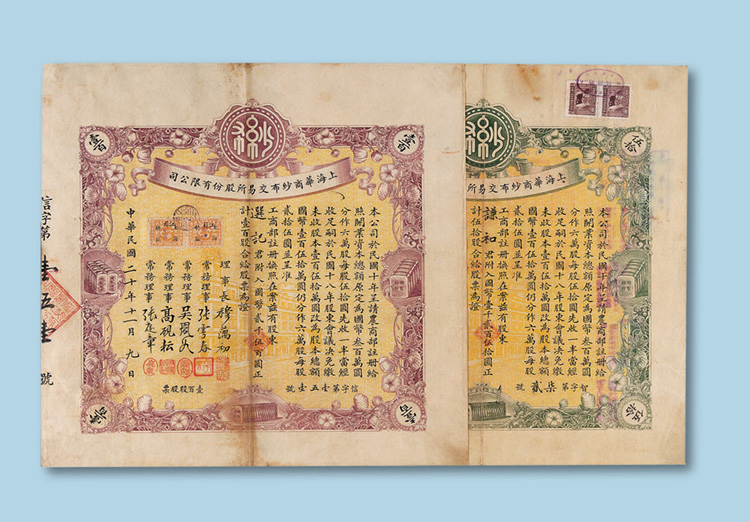 上海華商紗布交易所股份有限公司
壹百
壹百
本公司於民國十年呈請農商部註冊給
照開業資本總額原定為國幣叁百萬圓
分作六萬股每股伍拾圓先收一半當經
收足嗣於民國十八年股東會議決免繳
未收股本壹百伍拾萬圓改為股本總額
國幣壹百伍拾萬圓仍分作六萬股每股
貳拾伍圓並呈准
工商部註冊換照在案茲有股東
記君附入國幣貳千伍百圓正
計壹百股合給股票為證
理事長 穆藕初
常務理事
常務理事 吳
常務理事 高硯耘
常務理事 張
中華民國二十年十一月九日
信字第壹五壹號
壹百股股票
信字第壹五壹號
上海華商紗布交易所股份有限公司
伍拾
伍拾
本公司於民國十年呈請農商部註冊給
照開業資本總額原定為國幣叁百萬圓
分作六萬股每股伍拾圓先收一半當經
收足嗣於民國十八年股東會議決免繳
未收股本壹百伍拾萬圓改為股本總額
國幣壹百伍拾萬圓仍分作六萬股每股
貳拾伍圓並呈准
工商部註冊換照在案茲有股東
謙和君附入國幣壹千貳百伍拾圓正
計伍拾股合給股票為證
智字第柒貳號